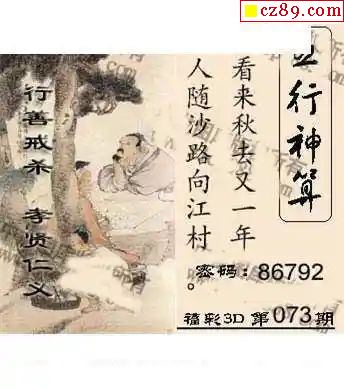 cz89.com
行神算
看来秋去又一年
人随沙路向江村。
行善戒杀 孝贤仁义
密码：86792
福彩3D 第073期